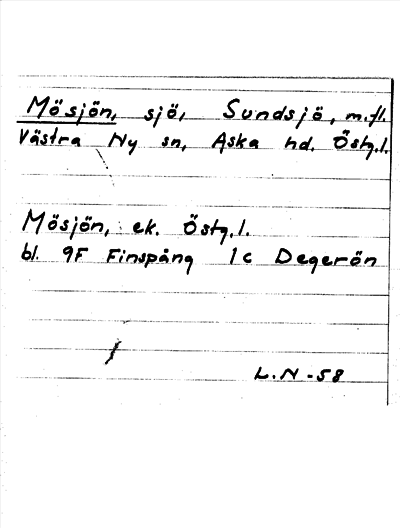 Mösjön, sjö, Sundsjö, m.fl.
Västra Ny sn, Aska hd. Östg.l.
Mösjön, ek. Östg.l.
bl. 9F Finspång 1c Degerön
L.N -58